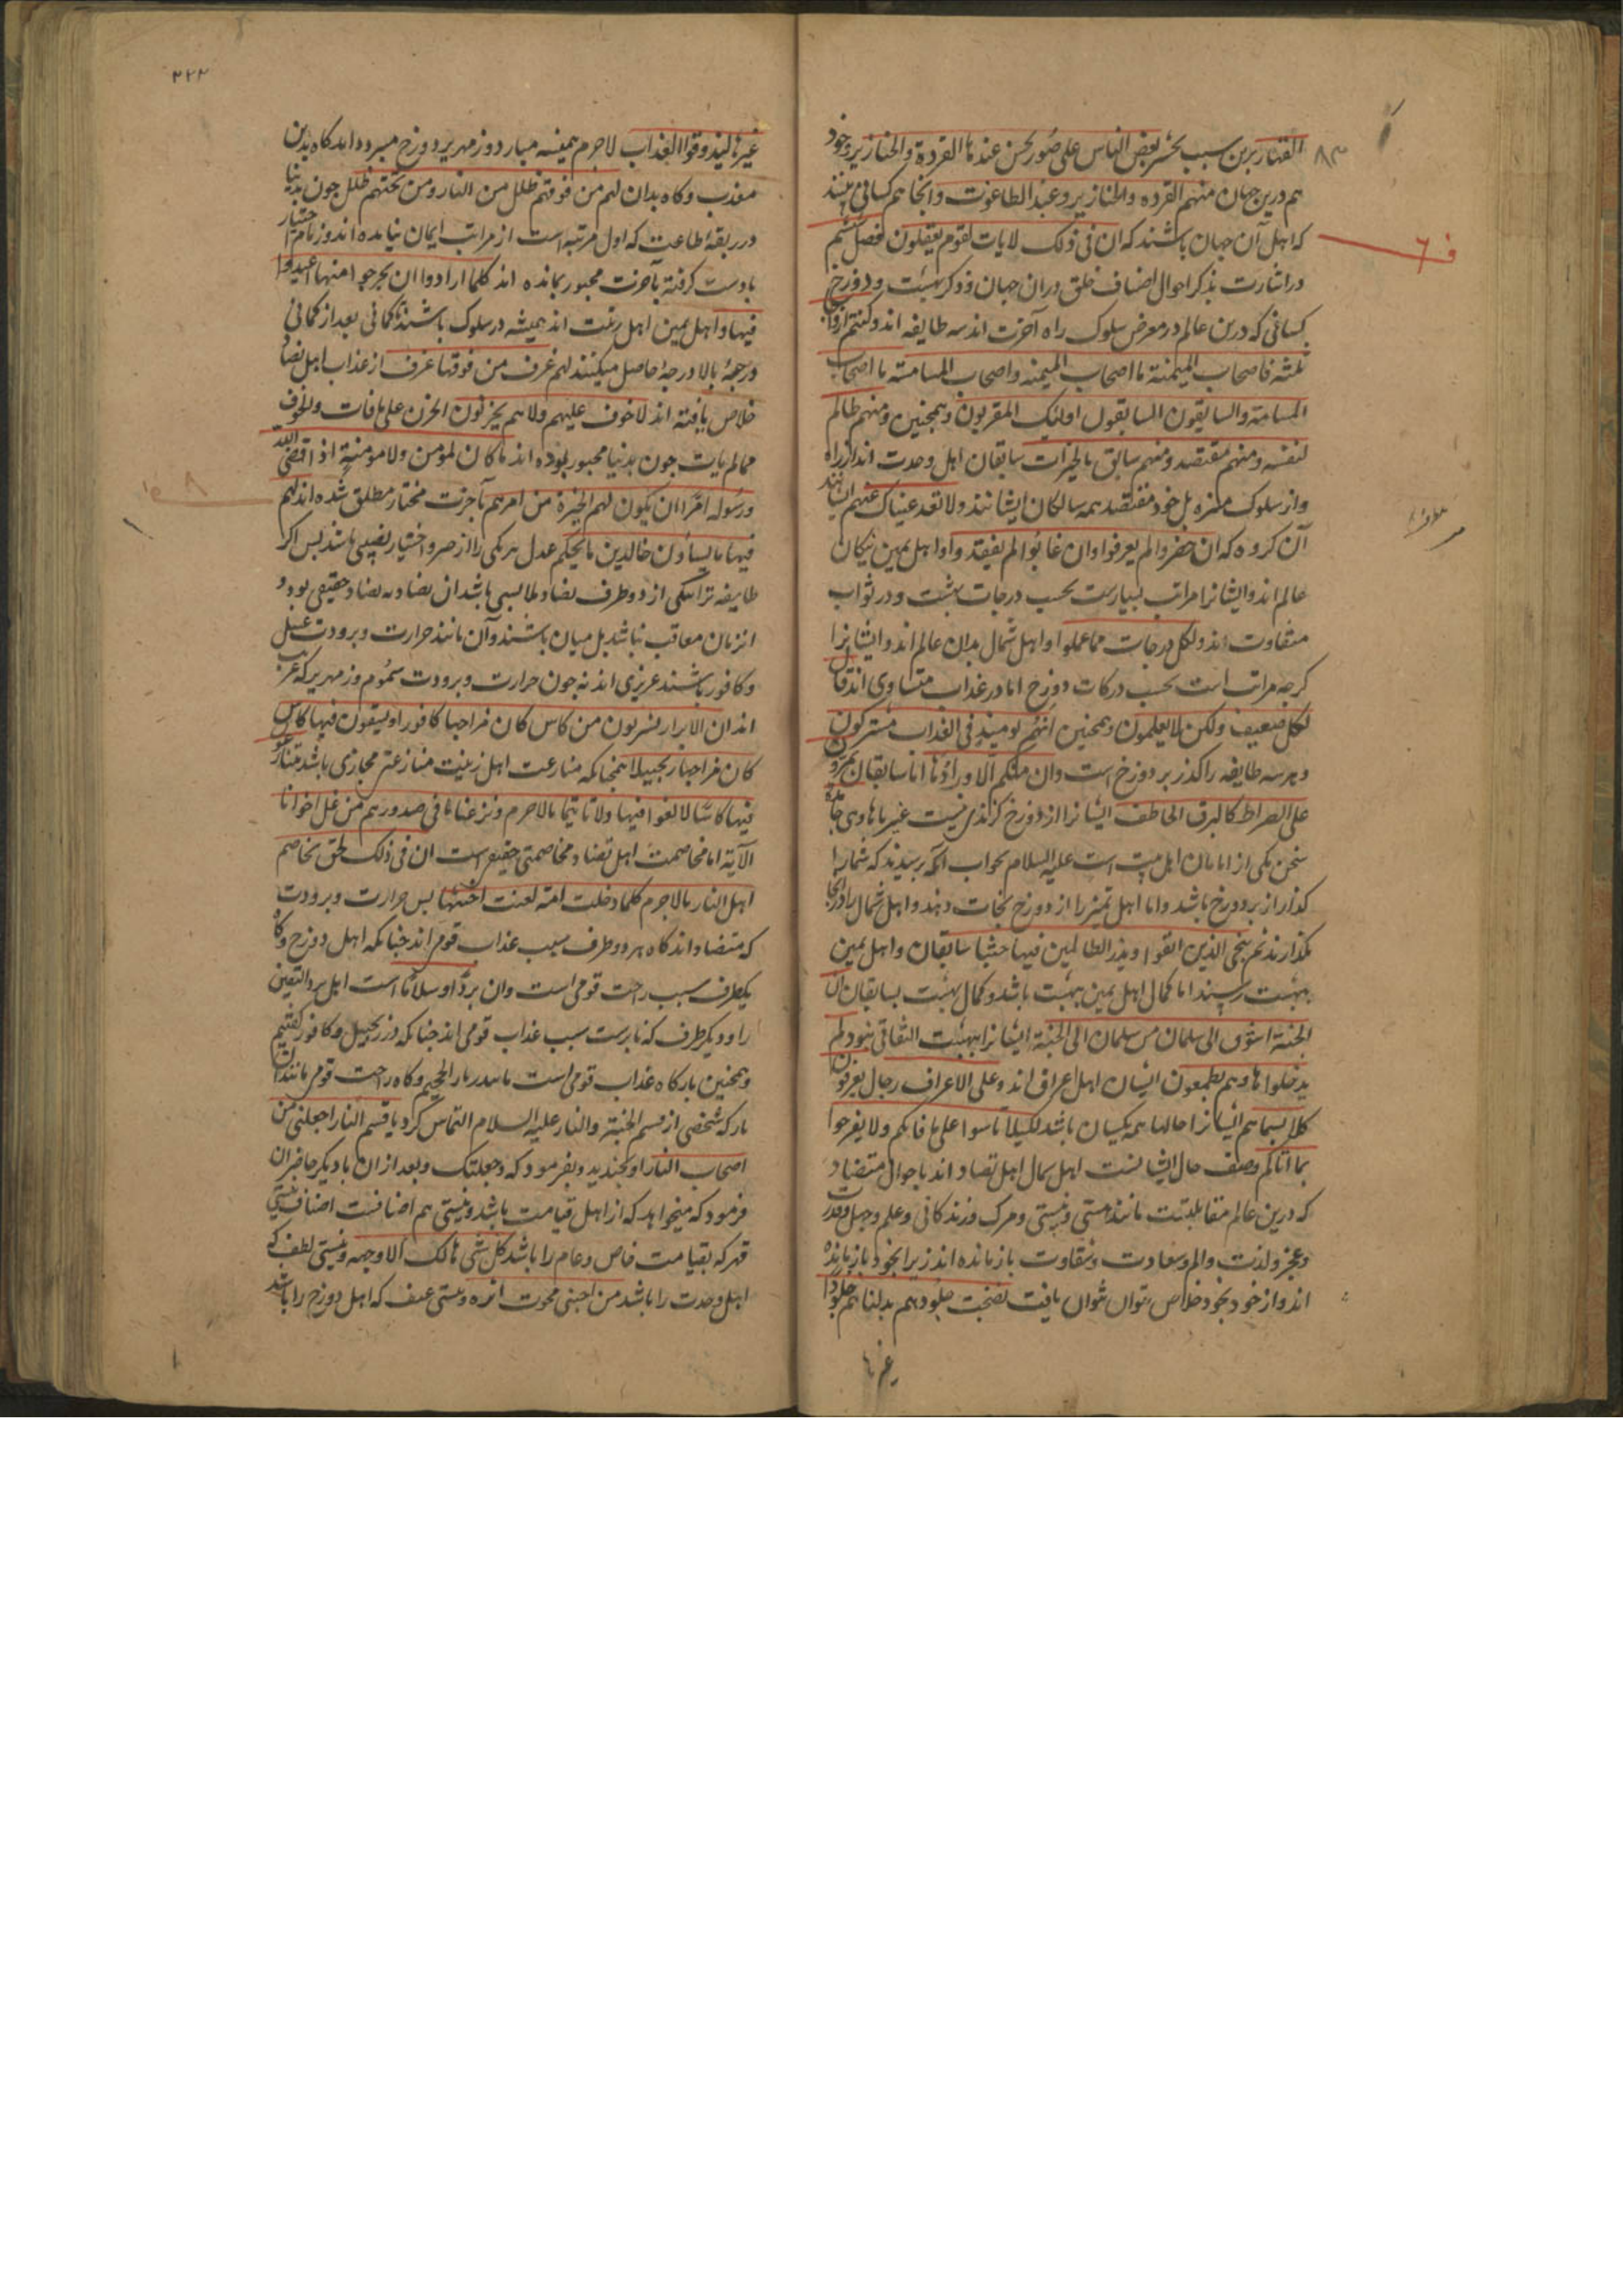 القهار برین سبب یحشر بعض الناس علی صور یحسن عندها القردة والخنازیر وخود
هم درین جهان منهم القرده والخنازیر وعبد الطاغوت وانجا هم کسانی بینند
که اهل آن جهان باشند که ان فی ذلک لایات لقوم یعقلون فصل ششم
در اشارت بذکر احوال اصناف خلق در ان جهان و ذکر بهشت و دوزخ
کسانی که درین عالم در معرض سلوک راه آخرت اند سه طایفه اند وکنتم ازواجا
ثلثة فاصحاب المیمنة ما اصحاب المیمنه واصحاب المشامة ما اصحاب
المشامة والسابقون السابقون اولئک المقربون وهمچنین ومنهم ظالم
لنفسه ومنهم مقتصد ومنهم سابق بالخیرات سابقان اهل وحدت اند از راه
و از سلوک منزه بل خود مقصد همه سالکان ایشانند ولا تعد عیناک عنهم ایشانند
آن کروه که ان حضروا لم یعرفوا وان غابوا لم یفقدوا و اهل یمین نیکان
عالم اند و ایشانرا مراتب بسیارست بحسب درجات بهشت و در ثواب
متفاوت اند ولکل درجات مما عملوا و اهل شمال بدان عالم اند و ایشانرا
کرچه مراتب است بحسب درکات دوزخ اما در عذاب متساوی اند قال
لکل ضعیف ولکن لا یعلمون وهمچنین انهم یومئذ فی العذاب مشترکون
و هر سه طایفه را کذر بر دوزخ است وان منکم الا واردها اما سابقان یمرون
علی الصراط کالبرق الخاطف ایشانرا از دوزخ کزندی نیست
سخن یکی از امامان اهل بیت است علیه السلام بجواب آنکه پرسیدند که شمارا
کذار از بر دوزخ باشد و اما اهل یمین را از دوزخ نجات دهند و اهل شمال را در انجا
بکذارند ثم ننجی الذین اتقوا ونذر الظالمین فیها جثیا سابقان و اهل یمین
بهشت رسند اما کمال اهل یمین بهشت باشد و کمال بهشت بسابقان ان
الجنة اشوق الی سلمان من سلمان الی الجنة ایشانرا ببهشت التفاتی نبود لم
یدخلوها وهم یطمعون ایشان اهل اعراف اند وعلی الاعراف رجال یعرفون
کلا بسیماهم ایشانرا حالها همه یکسان باشد لکیلا تاسوا علی ما فاتکم ولا تفرحوا
بما اتاکم وصف حال ایشانست اهل شمال اهل تضاد اند باحوال متضاد
که درین عالم متقابلست مانند هستی و نیستی و مرک و زندکانی و علم و جهل و قدرت
و عجز و لذت و الم و سعادت و شقاوت باز مانده اند زیرا بخود باز مانده
اند و از خود بخود خلاص نتوان یافت نضجت جلودهم بدلناهم جلودا
غیرها
غیرها لیذوقوا العذاب لاجرم همیشه میان دوزمهریر دوزخ مردد اند کاه بدین
معذب و کاه بدان لهم من فوقهم ظلل من النار ومن تحتهم ظلل چون بدنیا
در ربقه اطاعت که اول مرتبه است از مراتب ایمان نیامده اند و زمام اختیار
بادست کرفته بآخرت مجبور بمانده اند کلما ارادوا ان یخرجوا منها اعیدوا
فیها و اهل یمین اهل ترتب اند همیشه در سلوک باشند تا کمالی بعد از کمالی
درجهٔ بالا درجهٔ حاصل میکنند لهم غرف من فوقها غرف از عذاب اهل تضاد
خلاص یافته اند لا خوف علیهم ولا هم یحزنون الحزن علی مافات والخوف
مما لم یات چون بدنیا مجبور بوده اند ما کان لمؤمن ولا مؤمنة اذا قضی الله
ورسوله امرا ان یکون لهم الخیرة من امرهم بآخرت مختار مطلق شده اند لهم
فیها ما یشاؤن خالدین ما یحکم عدل هر یکی را از جبر و اختیار نصیبی باشد پس اکر
انرمان معاقب نباشد بل میان باشند و آن مانند حرارت و برودت عسل
و کافور باشند غریزی اند نه چون حرارت و برودت سموم و زمهریر که غریب
اند ان الابرار یشربون من کاس کان مزاجها کافورا ویسقون فیها کاس
کان مزاجها زنجبیلا همچنانکه منازعت اهل ترتب منازعتی مجازی باشد یتنازعون
فیها کاسا لا لغو فیها ولا تاثیما لاجرم ونزعنا ما فی صدورهم من غل اخوانا
الآیة اما مخاصمت اهل تضاد مخاصمتی حقیقی است ان فی ذلک لحق تخاصم
اهل النار لاجرم کلما دخلت امة لعنت اختها پس حرارت و برودت
که متضاد اند کاه هر دو طرف سبب عذاب قومی اند چنانکه اهل دوزخ و کاه
یکطرف سبب راحت قومی است وان بردا وسلاما است اهل برد الیقین
را و دیکر طرف که نارست سبب عذاب قومی اند چنانکه در زنجبیل و کافور کفتیم
وهمچنین نار کاه عذاب قومی است مانند نار الجحیم و کاه راحت قومی مانند ان
نار که شخصی از قسیم الجنة والنار علیه السلام التماس کرد یا قسیم النار اجعلنی من
اصحاب النار او بخندید و بفرمود که جعلتک و بعد از ان بادیکر حاضران
فرمود که میخواهد که از اهل قیامت باشد و نیستی هم اضافتست اضاف نیستی
قهر که بقیامت خاص و عام را باشد کل شی هالک الا وجهه و نیستی لطف که
اهل وحدت را باشد من احبنی محوت اثره و نیستی عنف که اهل دوزخ را باشد